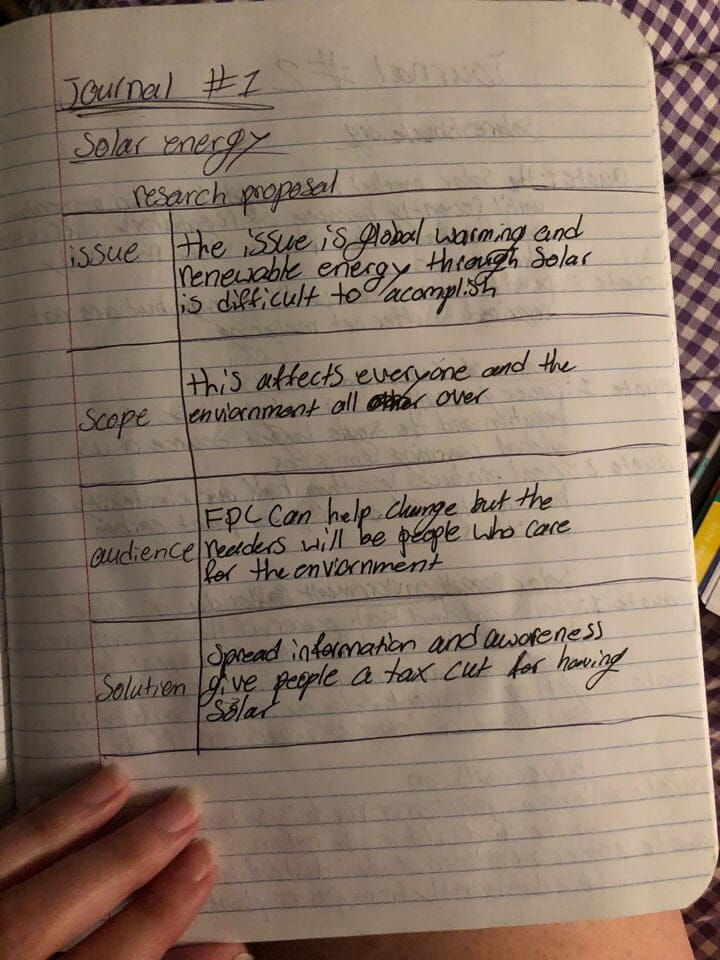 Journal #1
Solar energy
resarch proposal
issue
the issue is global warming and
renewable energy through Solar
is difficult to acomplish
Scope
this affects everyone and the
enviornment all over
audience
FPL Can help change but the
readers will be people who care
for the enviornment
Solution
Spread information and awareness
give people a tax cut for having
Solar